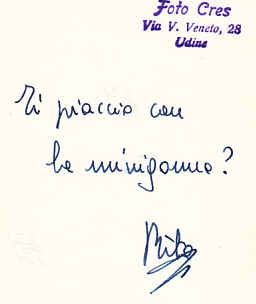 Foto Cres
Via V. Veneto, 28
Udine
Ti piaccio con
la minigonna?
Rita